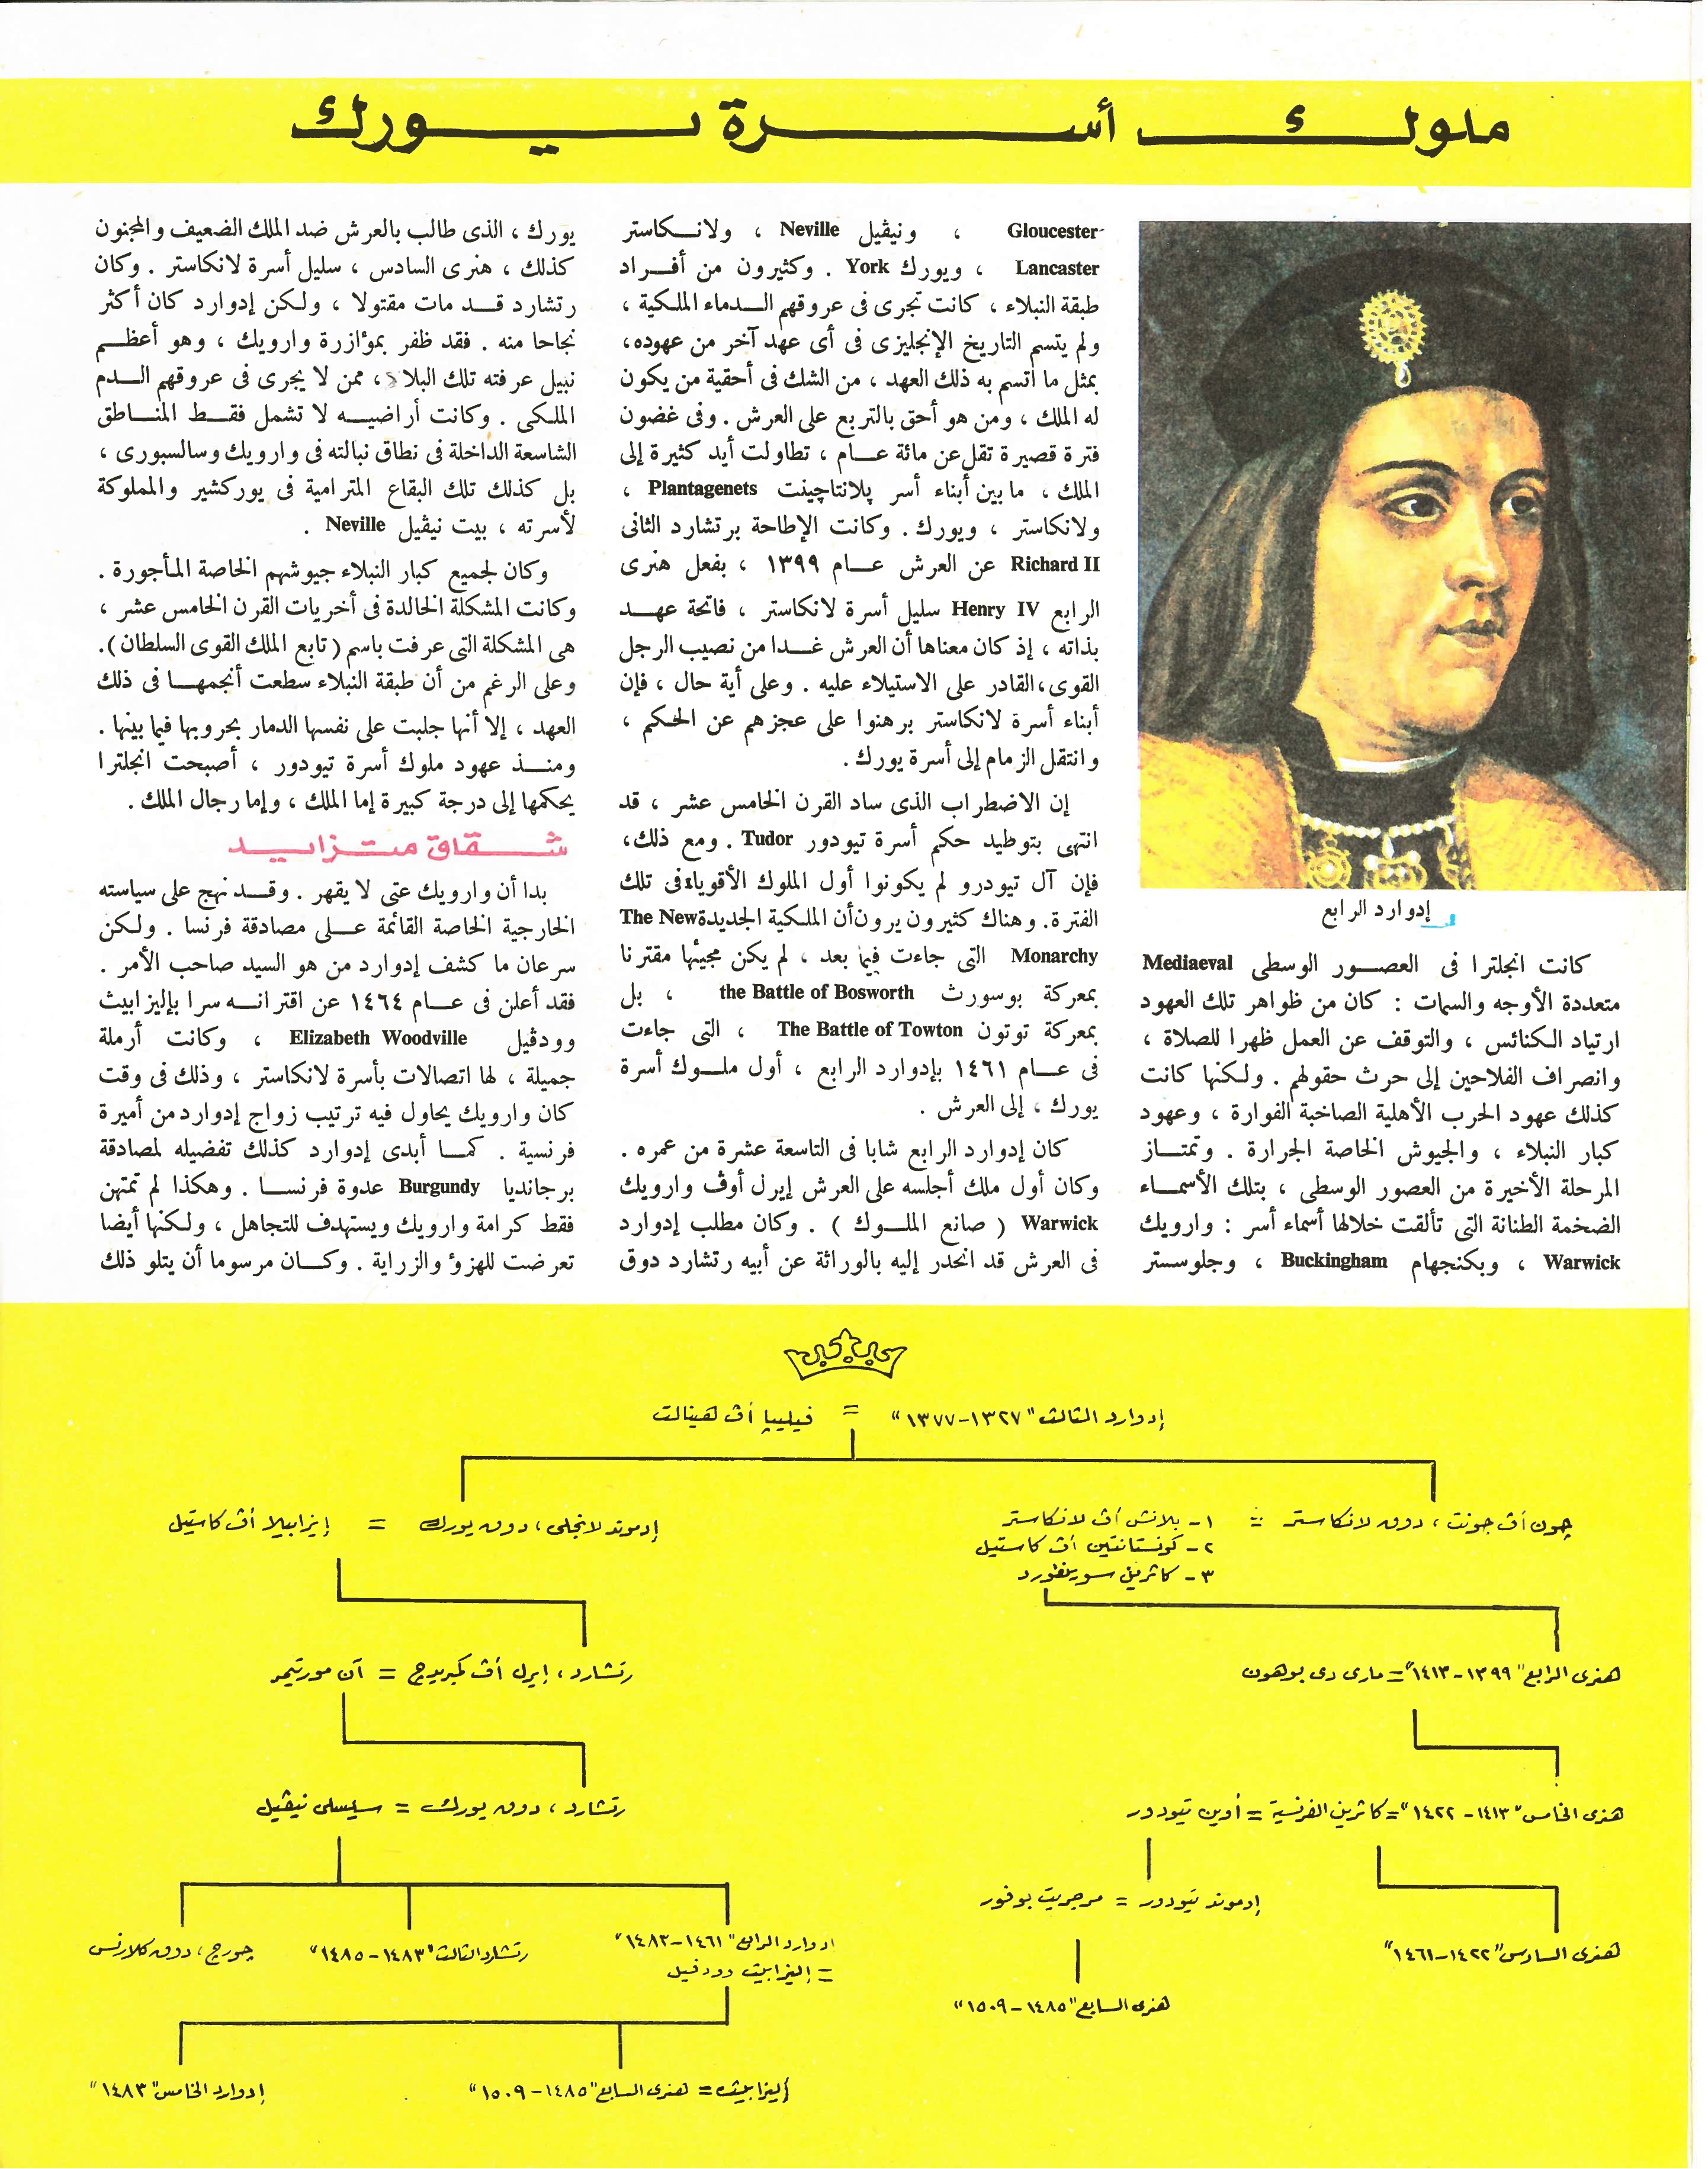 ملوك أسرة يورك
إدوارد الرابع
كانت انجلترا فى العصور الوسطى Mediaeval
متعددة الأوجه والسمات : كان من ظواهر تلك العهود
ارتياد الكنائس ، والتوقف عن العمل ظهرا للصلاة ،
وانصراف الفلاحين إلى حرث حقولهم . ولكنها كانت
كذلك عهود الحرب الأهلية الصاخبة الفوارة ، وعهود
كبار النبلاء ، والجيوش الخاصة الجرارة . وتمتاز
المرحلة الأخيرة من العصور الوسطى ، بتلك الأسماء
الضخمة الطنانة التى تألقت خلالها أسماء أسر : وارويك
Warwick ، وبكنجهام Buckingham ، وجلوسستر
Gloucester ، ونيڤيل Neville ، ولانكاستر
Lancaster ، ويورك York . وكثيرون من أفراد
طبقة النبلاء ، كانت تجرى فى عروقهم الدماء الملكية ،
ولم يتسم التاريخ الإنجليزى فى أى عهد آخر من عهوده ،
بمثل ما اتسم به ذلك العهد ، من الشك فى أحقية من يكون
له الملك ، ومن هو أحق بالتربع على العرش . وفى غضون
فترة قصيرة تقل عن مائة عام ، تطاولت أيد كثيرة إلى
الملك ، ما بين أبناء أسر پلانتاچينت Plantagenets ،
ولانكاستر ، ويورك . وكانت الإطاحة برتشارد الثانى
Richard II عن العرش عام ١٣٩٩ ، بفعل هنرى
الرابع Henry IV سليل أسرة لانكاستر ، فاتحة عهد
بذاته ، إذ كان معناها أن العرش غدا من نصيب الرجل
القوى ، القادر على الاستيلاء عليه . وعلى أية حال ، فإن
أبناء أسرة لانكاستر برهنوا على عجزهم عن الحكم ،
وانتقل الزمام إلى أسرة يورك .
إن الاضطراب الذى ساد القرن الخامس عشر ، قد
انتهى بتوطيد حكم أسرة تيودور Tudor . ومع ذلك ،
فإن آل تيودرو لم يكونوا أول الملوك الأقوياء فى تلك
الفترة . وهناك كثيرون يرون أن الملكية الجديدة The New
Monarchy التى جاءت فيما بعد ، لم يكن مجيئها مقترنا
بمعركة بوسورث the Battle of Bosworth ، بل
بمعركة توتون The Battle of Towton ، التى جاءت
فى عام ١٤٦١ بإدوارد الرابع ، أول ملوك أسرة
يورك ، إلى العرش .
كان إدوارد الرابع شابا فى التاسعة عشرة من عمره .
وكان أول ملك أجلسه على العرش إيرل أوڤ وارويك
Warwick ( صانع الملوك ) . وكان مطلب إدوارد
فى العرش قد انحدر إليه بالوراثة عن أبيه رتشارد دوق
يورك ، الذى طالب بالعرش ضد الملك الضعيف والمجنون
كذلك ، هنرى السادس ، سليل أسرة لانكاستر . وكان
رتشارد قد مات مقتولا ، ولكن إدوارد كان أكثر
نجاحا منه . فقد ظفر بمؤازرة وارويك ، وهو أعظم
نبيل عرفته تلك البلاد ، ممن لا يجرى فى عروقهم الدم
الملكى . وكانت أراضيه لا تشمل فقط المناطق
الشاسعة الداخلة فى نطاق نبالته فى وارويك وسالسبورى ،
بل كذلك تلك البقاع المترامية فى يوركشير والمملوكة
لأسرته ، بيت نيڤيل Neville .
وكان لجميع كبار النبلاء جيوشهم الخاصة المأجورة .
وكانت المشكلة الخالدة فى أخريات القرن الخامس عشر ،
هى المشكلة التى عرفت باسم ( تابع الملك القوى السلطان ) .
وعلى الرغم من أن طبقة النبلاء سطعت أنجمها فى ذلك
العهد ، إلا أنها جلبت على نفسها الدمار بحروبها فيما بينها .
ومنذ عهود ملوك أسرة تيودور ، أصبحت انجلترا
يحكمها إلى درجة كبيرة إما الملك ، وإما رجال الملك .
شقاق متزايد
بدا أن وارويك عتى لا يقهر . وقد نهج على سياسته
الخارجية الخاصة القائمة على مصادقة فرنسا . ولكن
سرعان ما كشف إدوارد من هو السيد صاحب الأمر .
فقد أعلن فى عام ١٤٦٤ عن اقترانه سرا بإليزابيث
وودڤيل Elizabeth Woodville ، وكانت أرملة
جميلة ، لها اتصالات بأسرة لانكاستر ، وذلك فى وقت
كان وارويك يحاول فيه ترتيب زواج إدوارد من أميرة
فرنسية . كما أبدى إدوارد كذلك تفضيله لمصادقة
برجانديا Burgundy عدوة فرنسا . وهكذا لم تمتهن
فقط كرامة وارويك ويستهدف للتجاهل ، ولكنها أيضا
تعرضت للهزؤ والزراية . وكان مرسوما أن يتلو ذلك
إدوارد الثالث "١٣٢٧-١٣٧٧" = فيليپا أڤ هينالت
چون أڤ جونت ، دوق لانكاستر = ١- بلانش أڤ لانكاستر
٢- كونستانتين أڤ كاستيل
٣- كاثرين سوينفورد
إدموند لانجلى ، دوق يورك = إيزابيلا أڤ كاستيل
هنرى الرابع "١٣٩٩-١٤١٣" = مارى دى بوهون
رتشارد ، إيرل أڤ كمبريدج = آن مورتيمر
هنرى الخامس "١٤١٣-١٤٢٢" = كاثرين الفرنسية = أوين تيودور
رتشارد ، دوق يورك = سيسلى نيڤيل
إدموند تيودور = مرجريت بوفور
هنرى السادس "١٤٢٢-١٤٦١"
إدوارد الرابع "١٤٦١-١٤٨٣"
= إليزابيث وودڤيل
رتشارد الثالث "١٤٨٣-١٤٨٥"
چورج ، دوق كلارنس
هنرى السابع "١٤٨٥-١٥٠٩"
إليزابيث = هنرى السابع "١٤٨٥-١٥٠٩"
إدوارد الخامس "١٤٨٣"